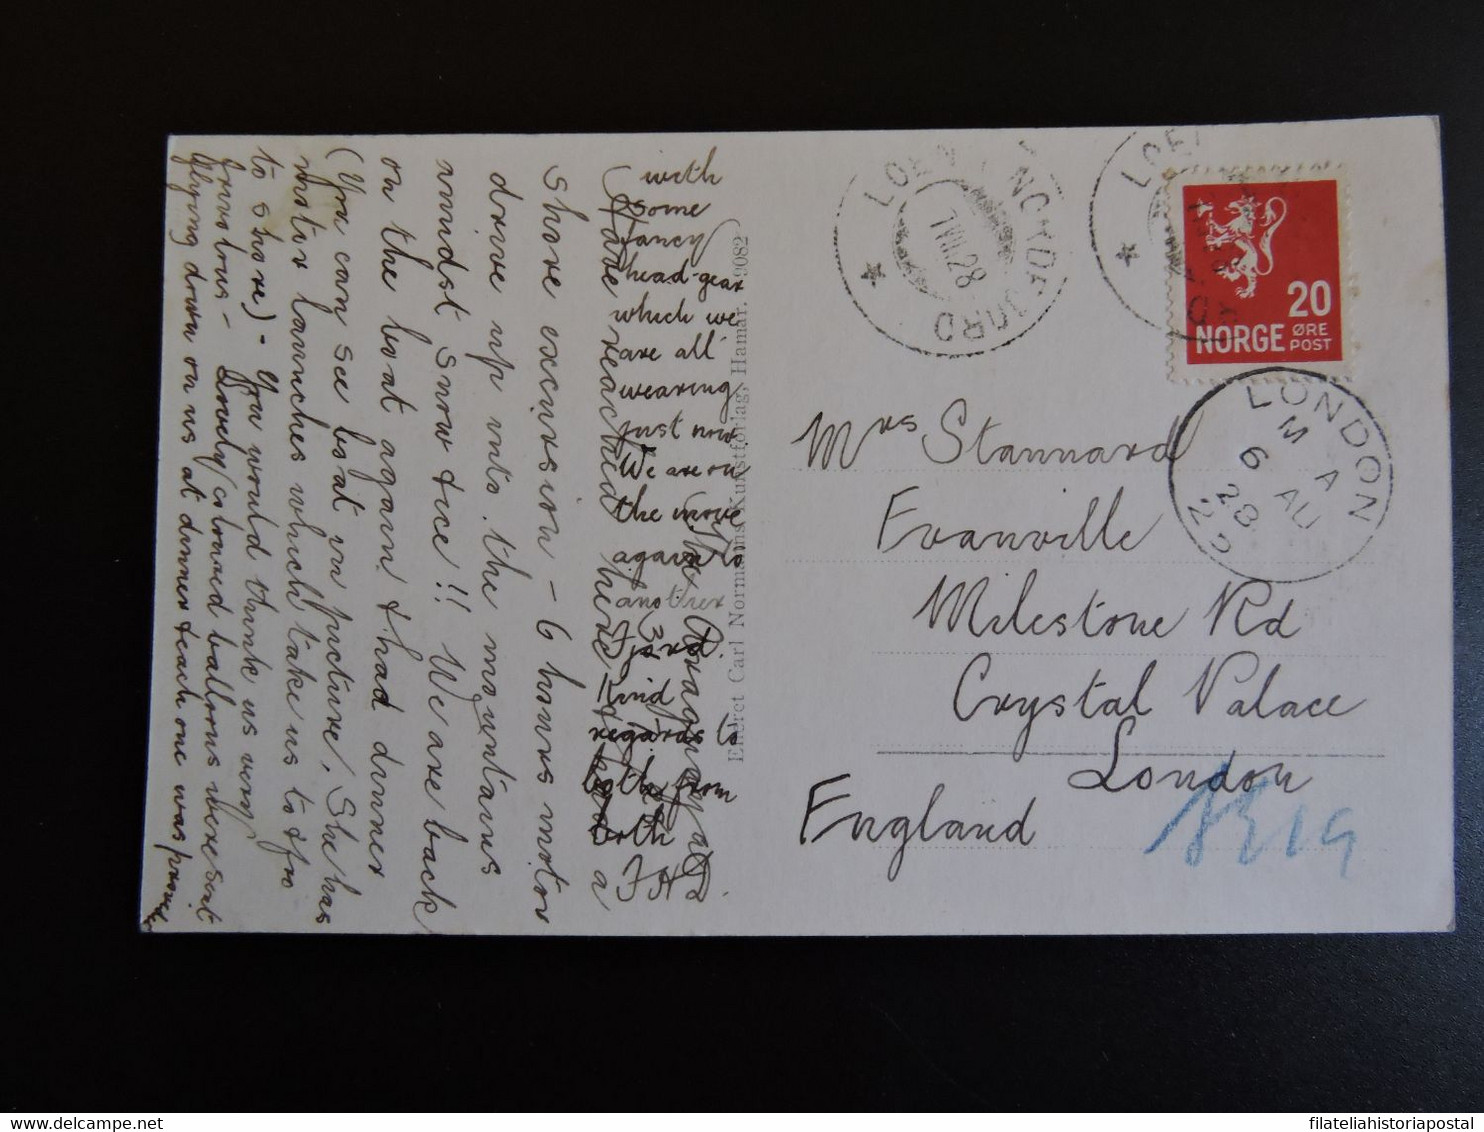 The Araguaya
have reached here & had a
shore excursion - 6 hours motor
drive up into the mountains
amidst snow & ice!! We are back
on the boat again & had dinner
(You can see boat in picture. She has
motor launches which take us to & fro
to shore) - You would think us very
frivolous - Lovely coloured balloons were sent
flying down on us at dinner & each one was prov.
with
some
fancy
head-gear
which we
are all
wearing
just now
We are on
the move
again to
another
Fjord.
Kind
regards to
both from
both
FHD.
Eneret Carl Normanns Kunstforlag, Hamar. 9082
LOEN NORDFJORD
7 VIII.28
LOEN
20
NORGE ØRE
POST
LONDON
M A
6 AU
28
22
Mrs Stannard
Evanville
Milestone Rd
Crystal Palace
London
England
filateliahistoriapostal